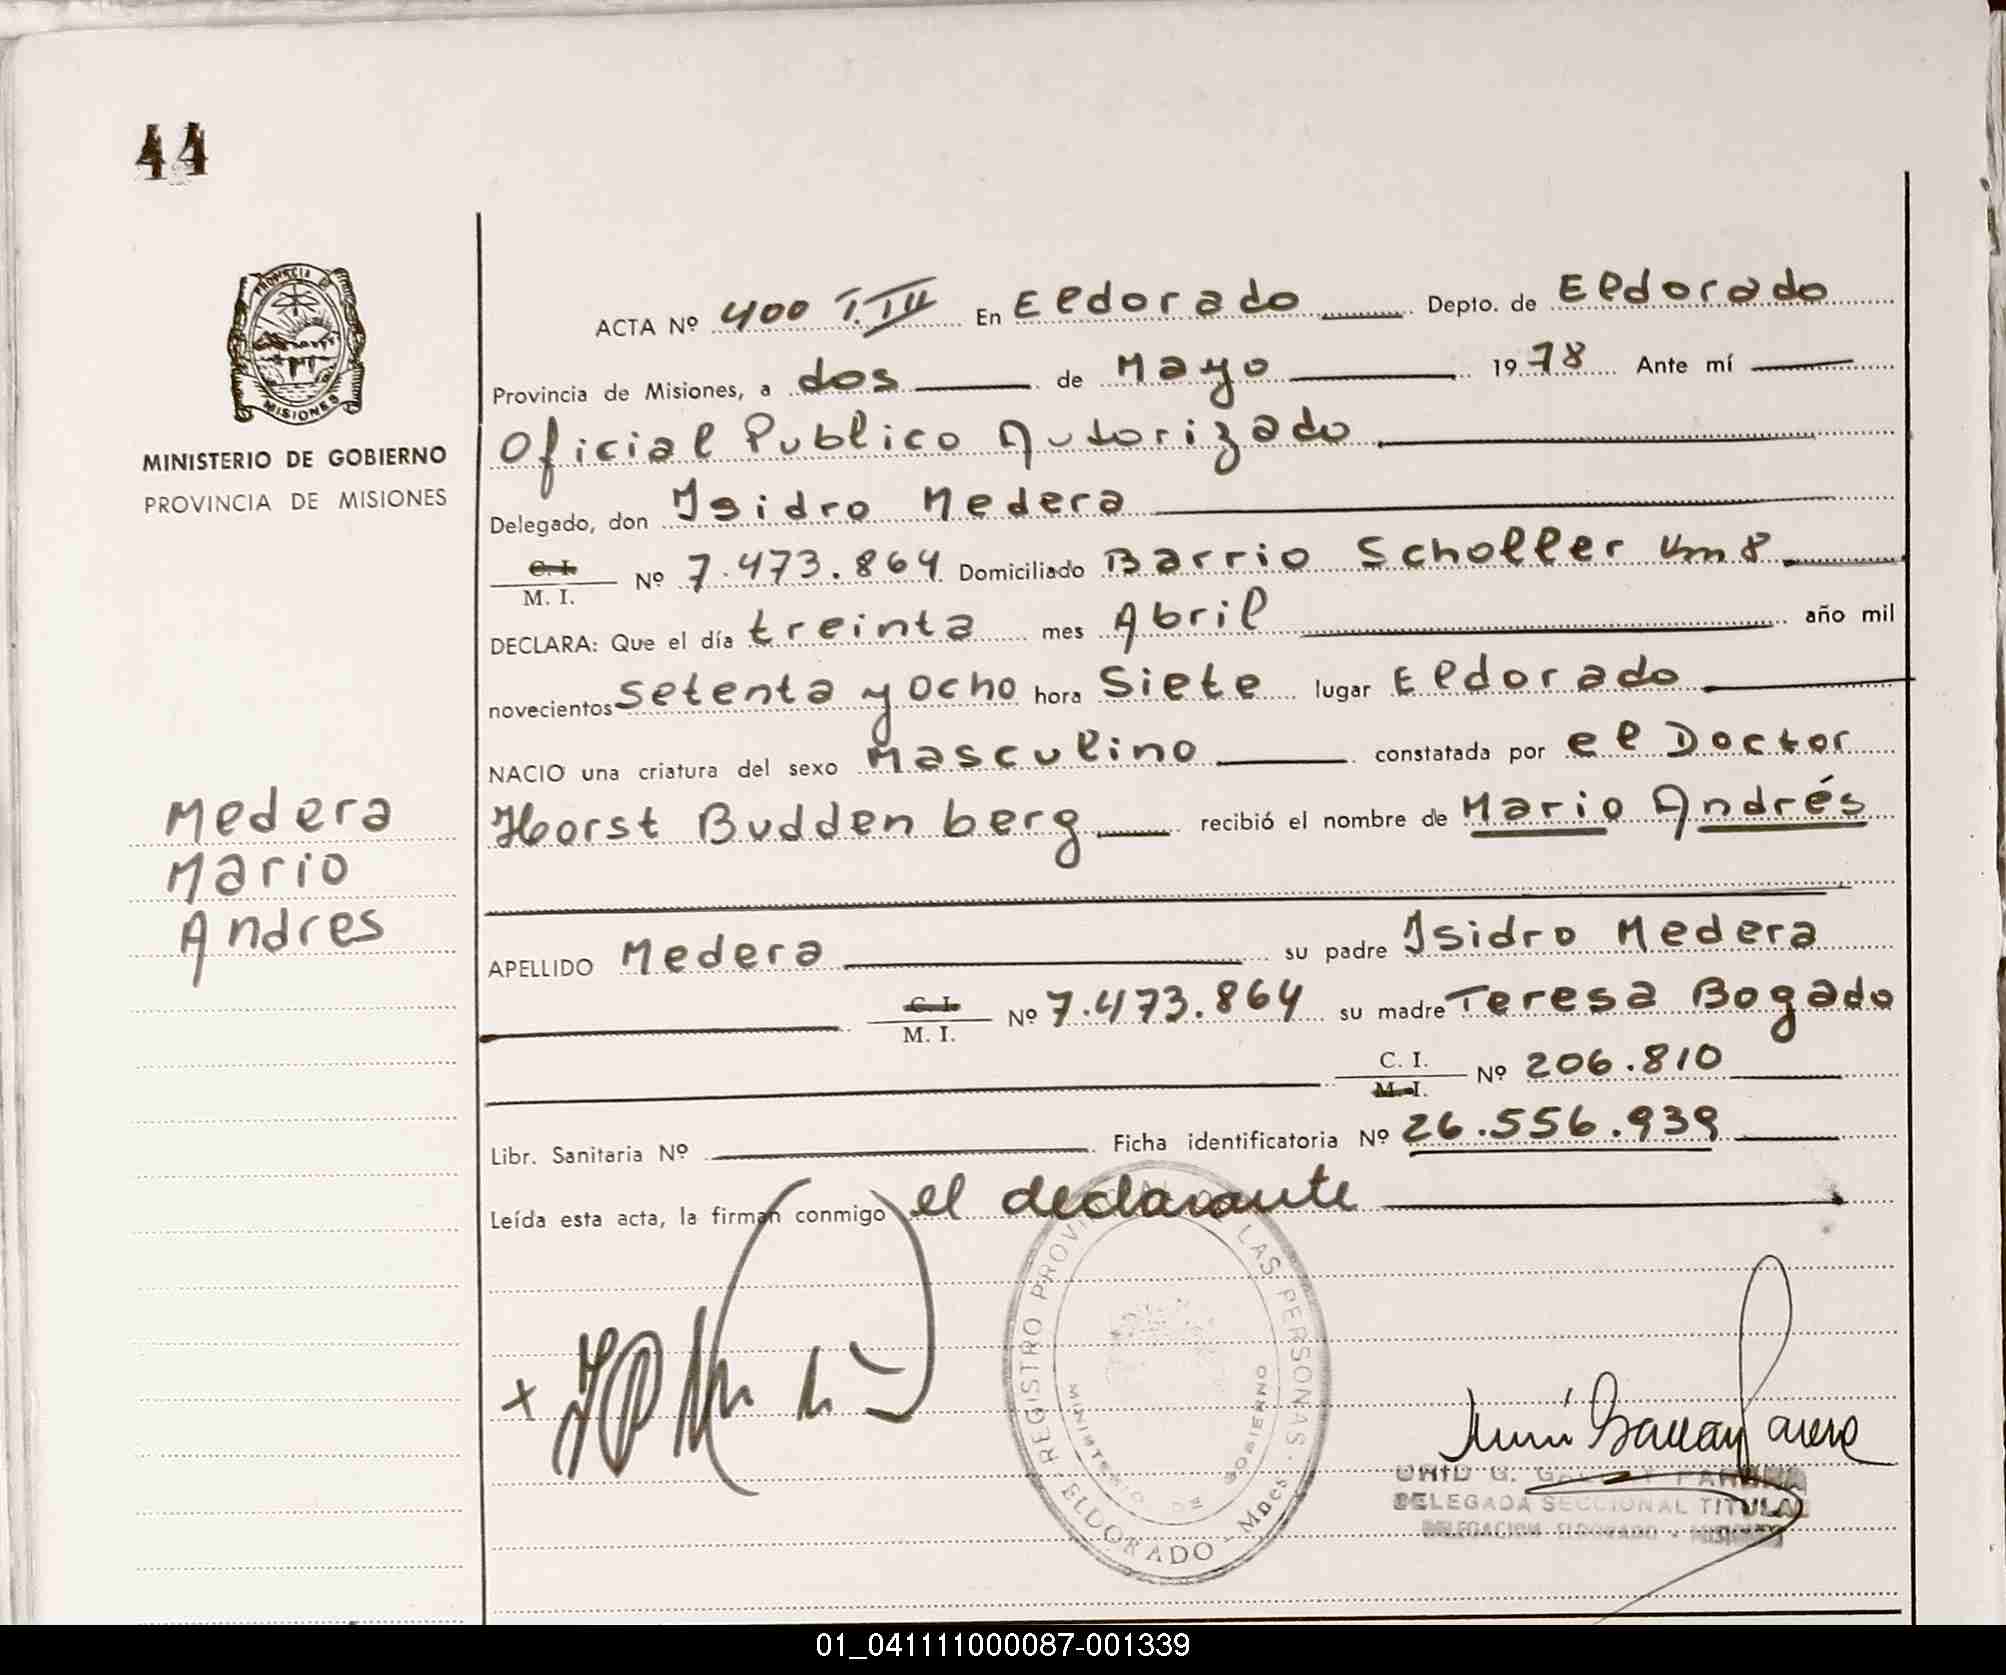 44
PROVINCIA
MISIONES
MINISTERIO DE GOBIERNO
PROVINCIA DE MISIONES
Medera
Mario
Andres
ACTA Nº 400 T.III En Eldorado Depto. de Eldorado
Provincia de Misiones, a dos de Mayo 1978 Ante mí
Oficial Publico Autorizado
Delegado, don Isidro Medera
C. I.
M. I. Nº 7.473.864 Domiciliado Barrio Scholler Km 8
DECLARA: Que el día treinta mes Abril año mil
novecientos setenta y ocho hora Siete lugar Eldorado
NACIO una criatura del sexo Masculino constatada por el Doctor
Horst Buddenberg recibió el nombre de Mario Andrés
APELLIDO Medera su padre Isidro Medera
C. I.
M. I. Nº 7.473.864 su madre Teresa Bogado
C. I.
M. I. Nº 206.810
Libr. Sanitaria Nº Ficha identificatoria Nº 26.556.939
Leída esta acta, la firman conmigo el declarante
REGISTRO PROVINCIAL DE LAS PERSONAS
MINISTERIO DE GOBIERNO
ELDORADO - Mnes
DELEGADA SECCIONAL TITULAR
DELEGACION ELDORADO - MISIONES
01_041111000087-001339